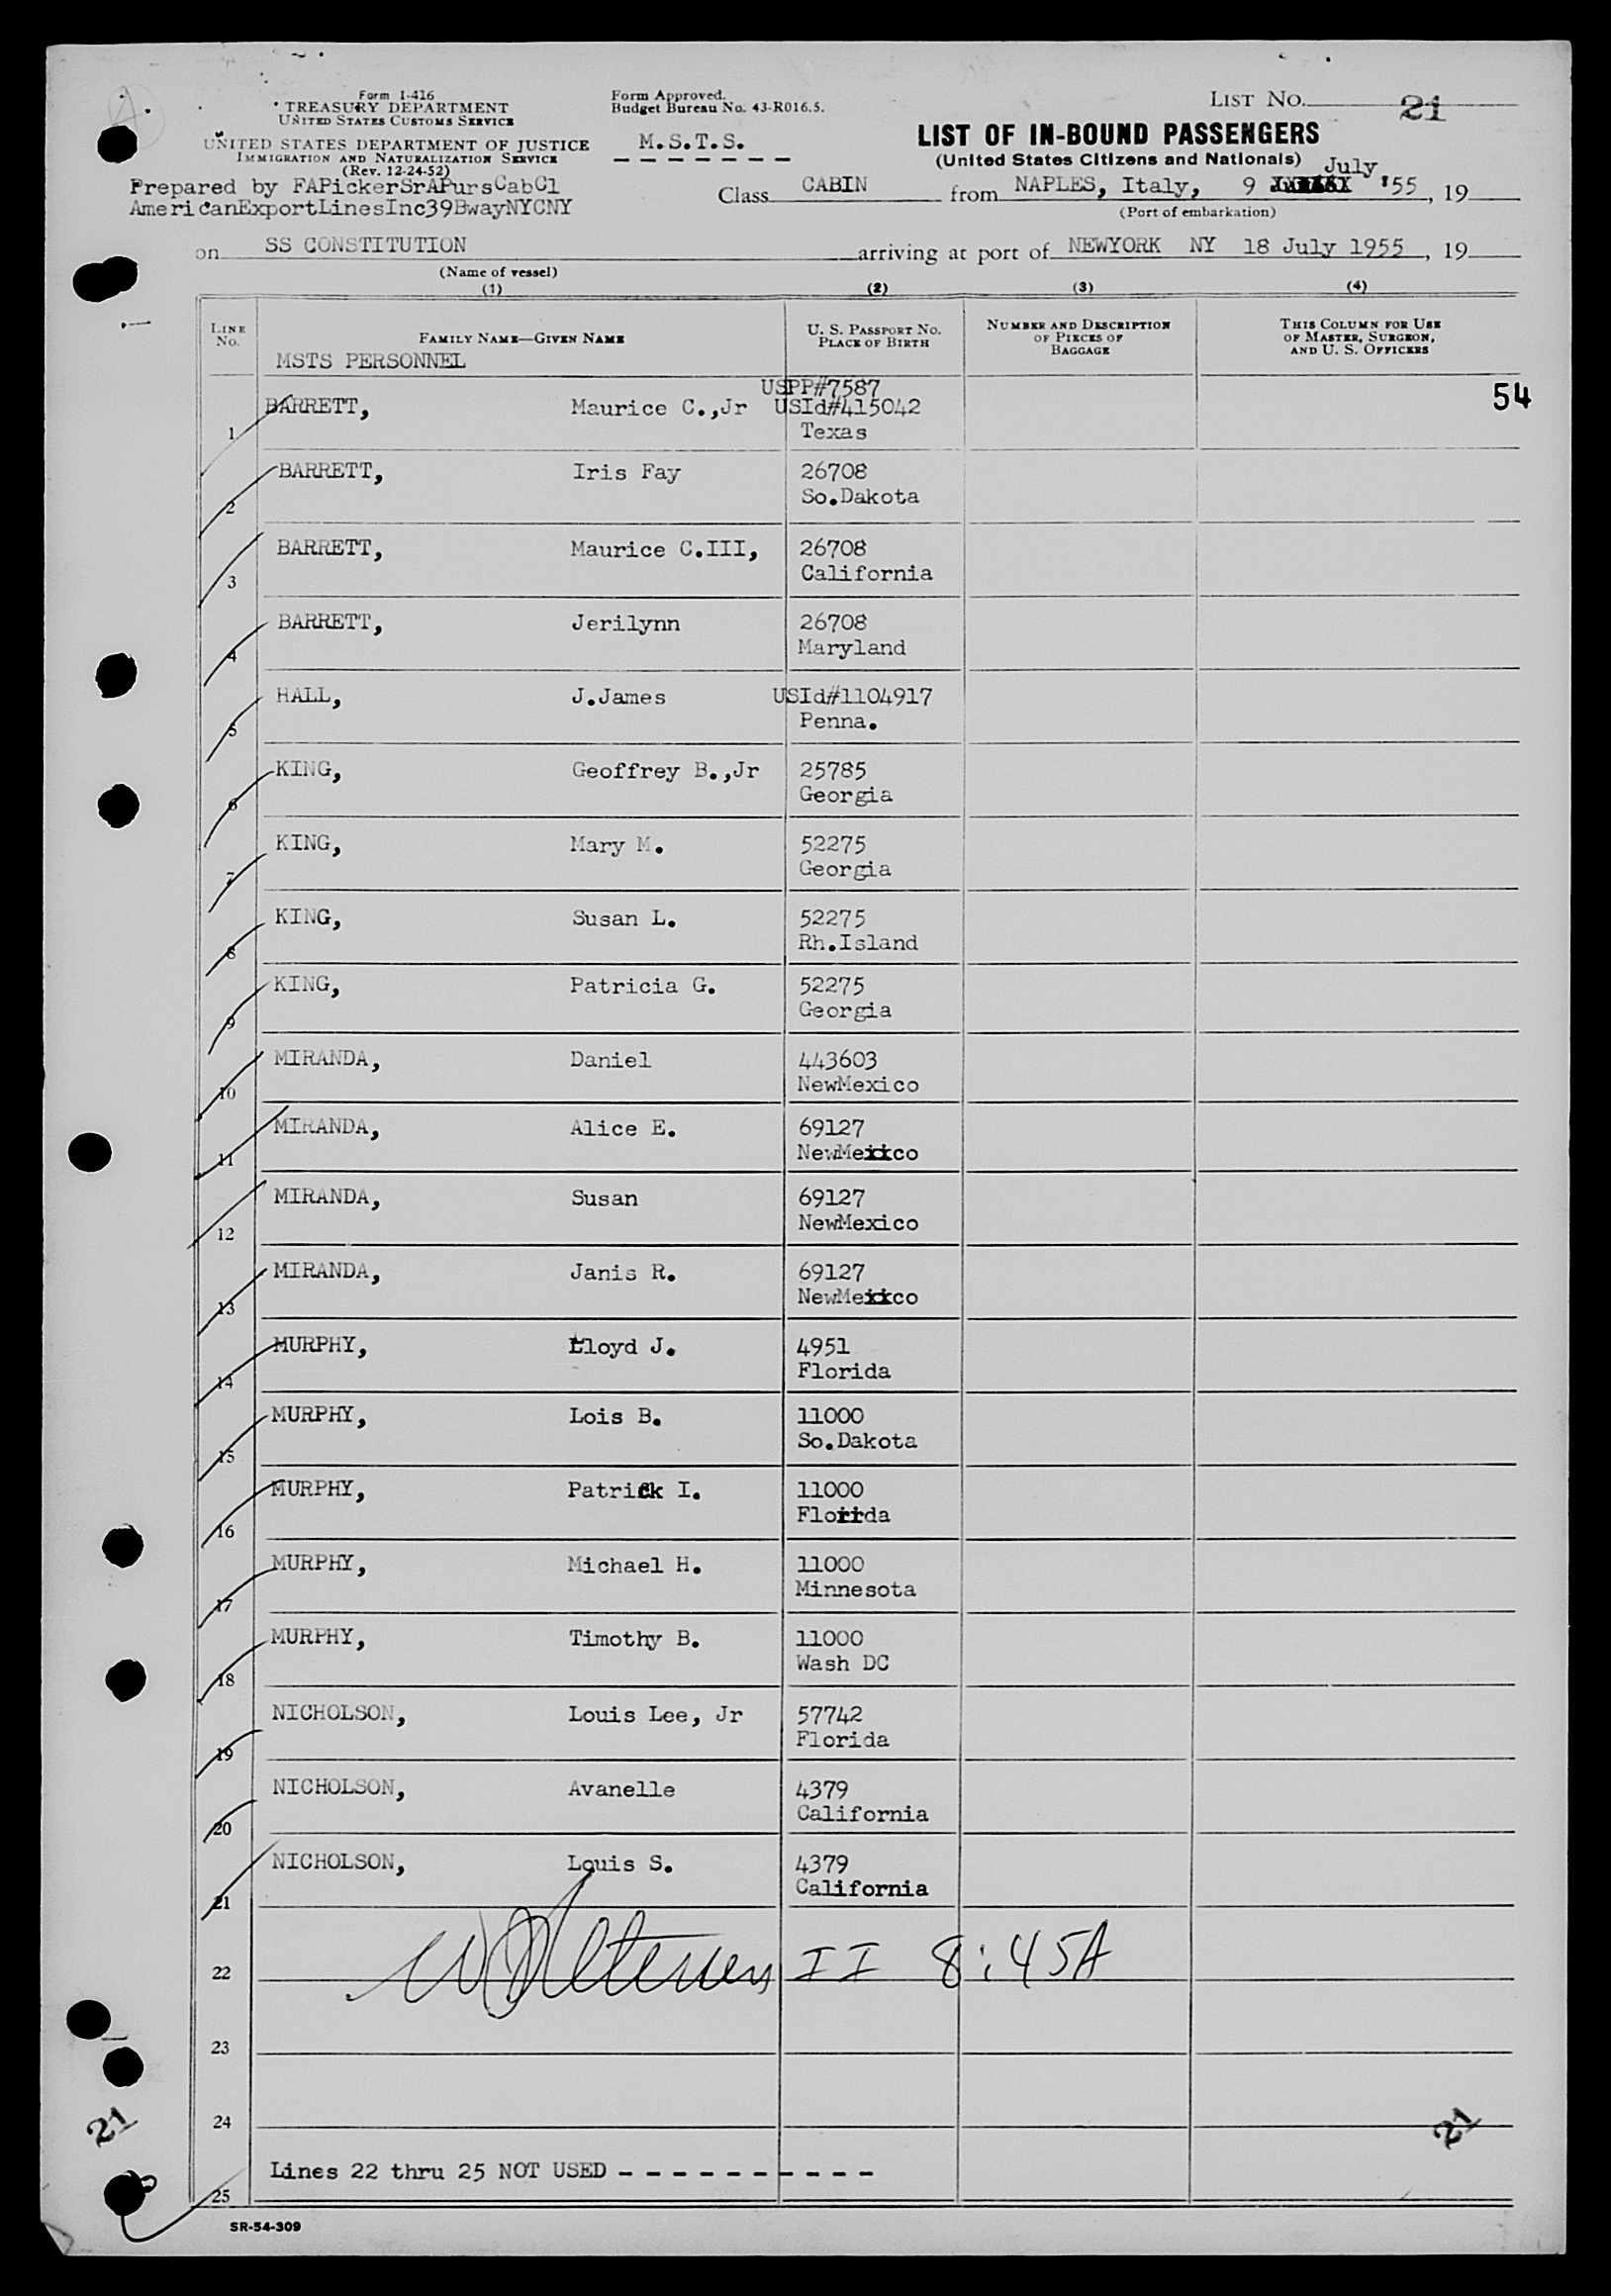 Form I-416
TREASURY DEPARTMENT
UNITED STATES CUSTOMS SERVICE
UNITED STATES DEPARTMENT OF JUSTICE
IMMIGRATION AND NATURALIZATION SERVICE
(Rev. 12-24-52)
Prepared by FAPickerSrAPursCabCl
AmericanExportLinesInc39BwayNYCNY
Form Approved.
Budget Bureau No. 43-R016.5.
M.S.T.S.
LIST NO. 21
LIST OF IN-BOUND PASSENGERS
(United States Citizens and Nationals)
Class CABIN from NAPLES, Italy, 9 July '55, 19
(Port of embarkation)
on SS CONSTITUTION arriving at port of NEWYORK NY 18 July 1955, 19
(Name of vessel)
(1) (2) (3) (4)
LINE NO. FAMILY NAME—GIVEN NAME U. S. PASSPORT NO. PLACE OF BIRTH NUMBER AND DESCRIPTION OF PIECES OF BAGGAGE THIS COLUMN FOR USE OF MASTER, SURGEON, AND U. S. OFFICERS
MSTS PERSONNEL
USPP#7587
54
1 BARRETT, Maurice C.,Jr USId#415042
Texas
2 BARRETT, Iris Fay 26708
So.Dakota
3 BARRETT, Maurice C.III, 26708
California
4 BARRETT, Jerilynn 26708
Maryland
5 HALL, J.James USId#1104917
Penna.
6 KING, Geoffrey B.,Jr 25785
Georgia
7 KING, Mary M. 52275
Georgia
8 KING, Susan L. 52275
Rh.Island
9 KING, Patricia G. 52275
Georgia
10 MIRANDA, Daniel 443603
NewMexico
11 MIRANDA, Alice E. 69127
NewMexico
12 MIRANDA, Susan 69127
NewMexico
13 MIRANDA, Janis R. 69127
NewMexico
14 MURPHY, Lloyd J. 4951
Florida
15 MURPHY, Lois B. 11000
So.Dakota
16 MURPHY, Patrick I. 11000
Florida
17 MURPHY, Michael H. 11000
Minnesota
18 MURPHY, Timothy B. 11000
Wash DC
19 NICHOLSON, Louis Lee, Jr 57742
Florida
20 NICHOLSON, Avanelle 4379
California
21 NICHOLSON, Louis S. 4379
California
22 II 8:45A
23
24
21 21
Lines 22 thru 25 NOT USED - - - - - - - - - -
25
SR-54-309